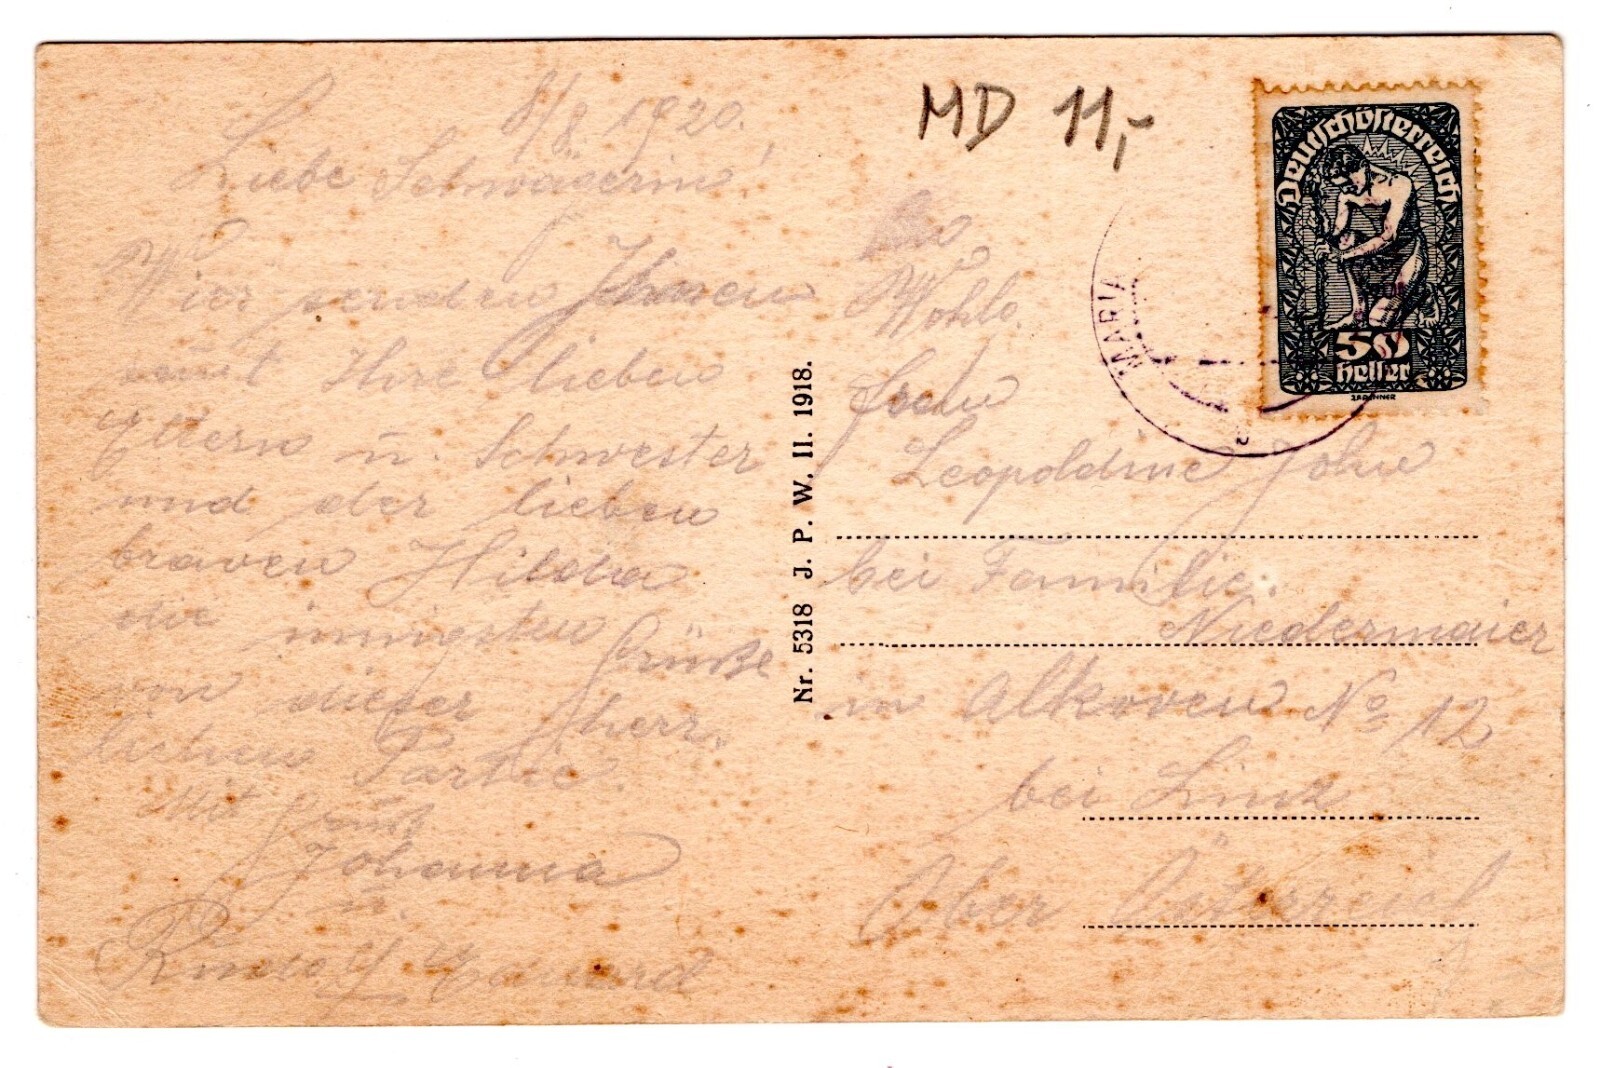 8/8 1920.
Liebe Schwägerin!
Wier senden Ihnen
samt Ihre lieben
Eltern u. Schwester
und der lieben
braven Hilda
die innigsten
Grüße
von dieser herr-
lichen Partie.
Mit Gruß
Johanna
u.
Eduard
Nr. 5318 J. P. W. II. 1918.
MD 11,-
Deutschösterreich
50
Heller
MARIA
An
Wohlg.
Frau
Leopoldine John
bei Familie
Niedermaier
in Alkoven No 12
bei Linz
Ober Österreich